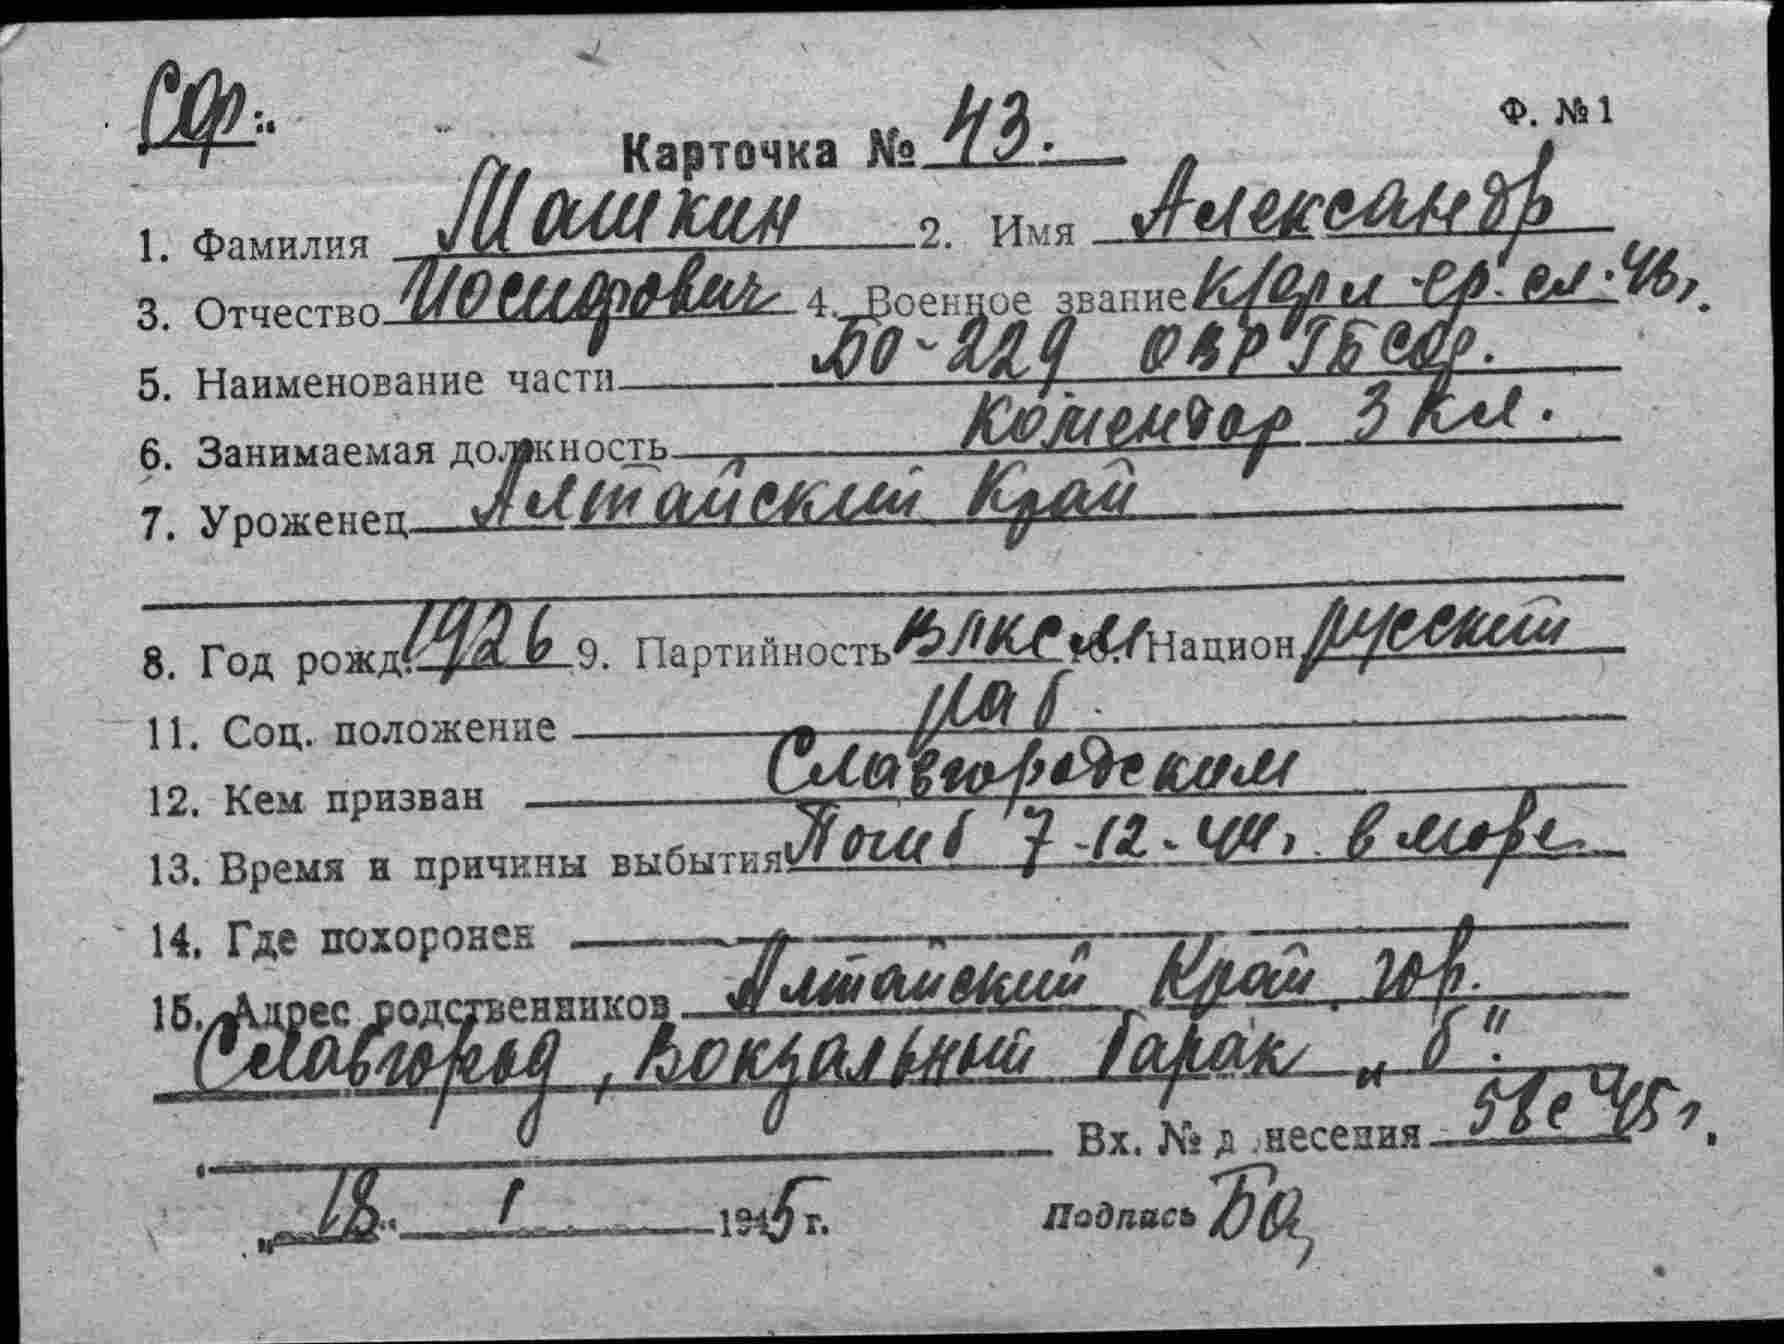 СФ:.
Ф. №1
Карточка № 43.
1. Фамилия Машкин 2. Имя Александр
3. Отчество Иосифович 4. Военное звание к/фл ср. сл. 43 г.
5. Наименование части БО-229 ОВР ГБ СФ.
6. Занимаемая должность Комендор 3 кл.
7. Уроженец Алтайский Край
8. Год рожд. 1926 9. Партийность ВЛКСМ 10. Национ русский
11. Соц. положение раб.
12. Кем призван Славгородским
13. Время и причины выбытия Погиб 7-12-44 г. в море
14. Где похоронен
15. Адрес родственников Алтайский Край, гор.
Славгород, Вокзальный барак „б".
Вх. № д несения 58с 45 г.
„18" 1 1945 г. Подпись